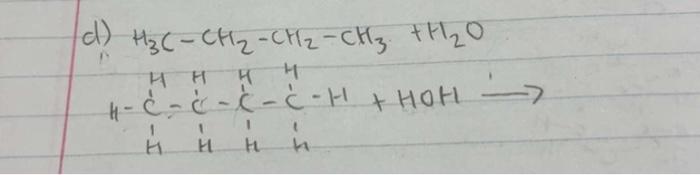 d) H₃C-CH₂-CH₂-CH₃ + H₂O
H H H H
H-C-C-C-C-H + HOH →
H H H H